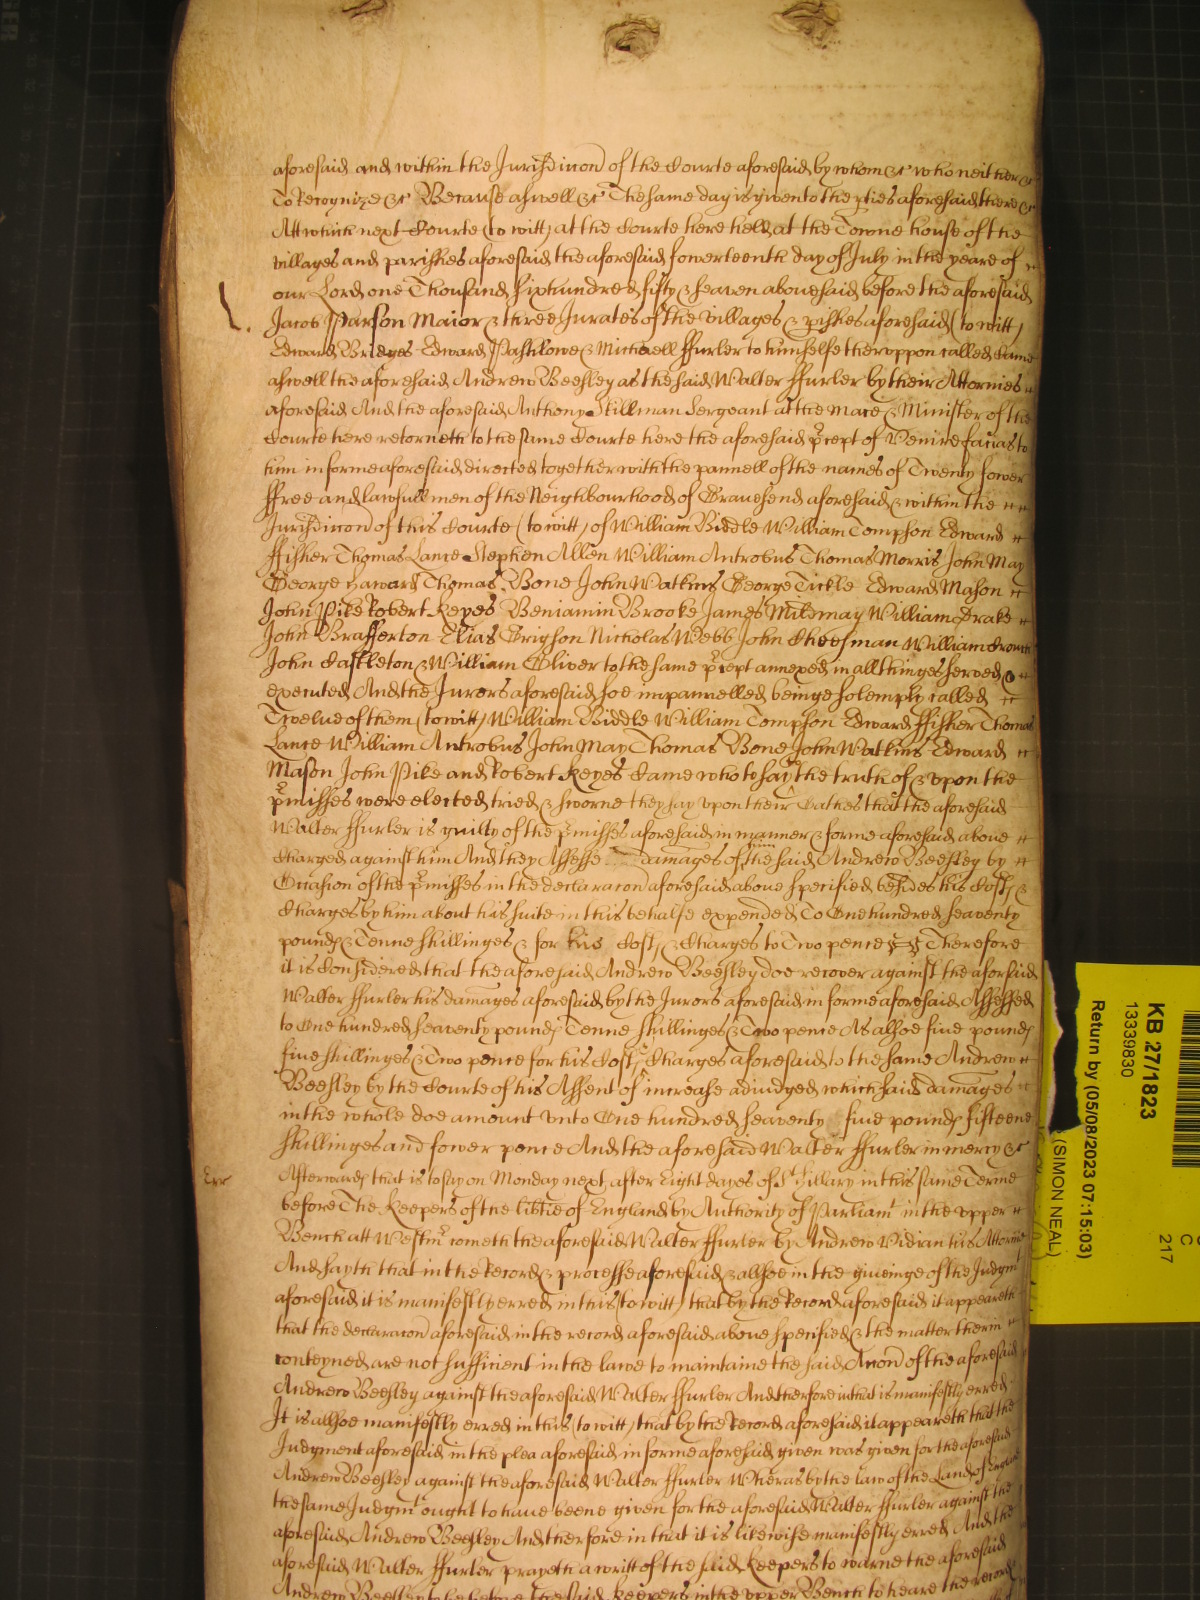 aforesaid and within the Jurisdiccon of the Courte aforesaid by whom &c who neither &c
To Recognize &c Because aswell &c The same day is given to the pties aforesaid there &c
Att which next Courte (to witt) at the Courte here held at the Towne house of the
villages and parishes aforesaid the aforesaid fowerteenth day of July in the yeare of
our Lord one Thousand sixhundred fifty & seaven abouesaid before the aforesaid
Jacob Parson Maior & three Jurates of the villages & pishes aforesaid (to witt)
Edward Bridges Edward Pashlowe & Michaell ffurler to himselfe therevppon called Came
aswell the aforesaid Andrew Beesley as the said Walter ffurler by their Attornies
aforesaid And the aforesaid Anthony Skillman Sergeant at the Mace & Minister of the
Courte here retorneth to the same Courte here the aforesaid pcept of Venire facias to
him in forme aforesaid directed together with the pannell of the names of Twenty fower
ffree and lawfull men of the Neighbourhood of Gravesend aforesaid & within the
Jurisdiccon of this Courte (to witt) of William Biddle William Tompson Edward
ffisher Thomas Lance Stephen Allen William Antrobus Thomas Morris John May
George Haward Thomas Bone John Watkins George Tickle Edward Mason
John Pike Robert Keyes Beniamin Brooke James Mildmay William Drake
John Brafferton Elias Grigson Nicholas Webb John Cheesman William Crouch
John Castleton & William Oliver to the same pcept annexed in all thinges served &
executed And the Jurors aforesaid soe impannelled beinge solemply called
Twelue of them (to witt) William Biddle William Tompson Edward ffisher Thomas
Lance William Antrobus John May Thomas Bone John Watkins Edward
Mason John Pike and Robert Keyes Came who to say the truth of & vpon the
pmisses were elected tried & sworne they say vpon their Oathes that the aforesaid
Walter ffurler is guilty of the pmisses aforesaid in manner & forme aforesaid aboue
Charged against him And they Assesse damages of him the said Andrew Beesley by
Occasion of the pmisses in the declaracon aforesaid aboue specified besides his Costs &
Charges by him about his suite in this behalfe expended To One hundred seaventy
pounds & Tenne shillinges & for his Costs & Charges to Two pence Therefore
it is Considered that the aforesaid Andrew Beesley doe recover against the aforesaid
Walter ffurler his damages aforesaid by the Jurors aforesaid in forme aforesaid Assessed
to One hundred seaventy pounds Tenne shillinges & Two pence As alsoe fiue pounds
fiue shillinges & Two pence for his Costs & Charges aforesaid to the same Andrew
Beesley by the Courte of his Assent of increase adiudged which said damages
in the whole doe amount vnto One hundred seaventy fiue pounds fifteene
shillinges and fower pence And the aforesaid Walter ffurler in mercy &c
Err Afterwards that is to say on Monday next after Eight dayes of St Hillary in this same Terme
before The Keepers of the libtie of England by Authority of Parliamt in the vpper
Bench att Westmr cometh the aforesaid Walter ffurler by Andrew Vidian his Attorney
And sayth that in the Record & processe aforesaid & alsoe in the giueinge of the Judgmt
aforesaid it is manifestly erred in this (to witt) that by the Record aforesaid it appeareth
that the declaracon aforesaid in the record aforesaid aboue specified & the matter therin
conteyned are not sufficient in the lawe to maintaine the said Accon of the aforesaid
Andrew Beesley against the aforesaid Walter ffurler And therfore in that is manifestly erred
It is allsoe manifestly erred in this (to witt) that by the Record aforesaid it appeareth that the
Judgment aforesaid in the plea aforesaid in forme aforesaid given was given for the aforesaid
Andrew Beesley against the aforesaid Walter ffurler Wheras by the law of the Land of England
the same Judgmt ought to haue beene given for the aforesaid Walter ffurler against the
aforesaid Andrew Beesley And therfore in that it is likewise manifestly erred And the
aforesaid Walter ffurler prayeth a writt of the said Keepers to warne the aforesaid
Andrew Beesley to be before the said Keepers in the vpper Bench to heare the record
KB 27/1823
13339830
Return by (05/08/2023 07:15:03)
(SIMON NEAL)
C
217